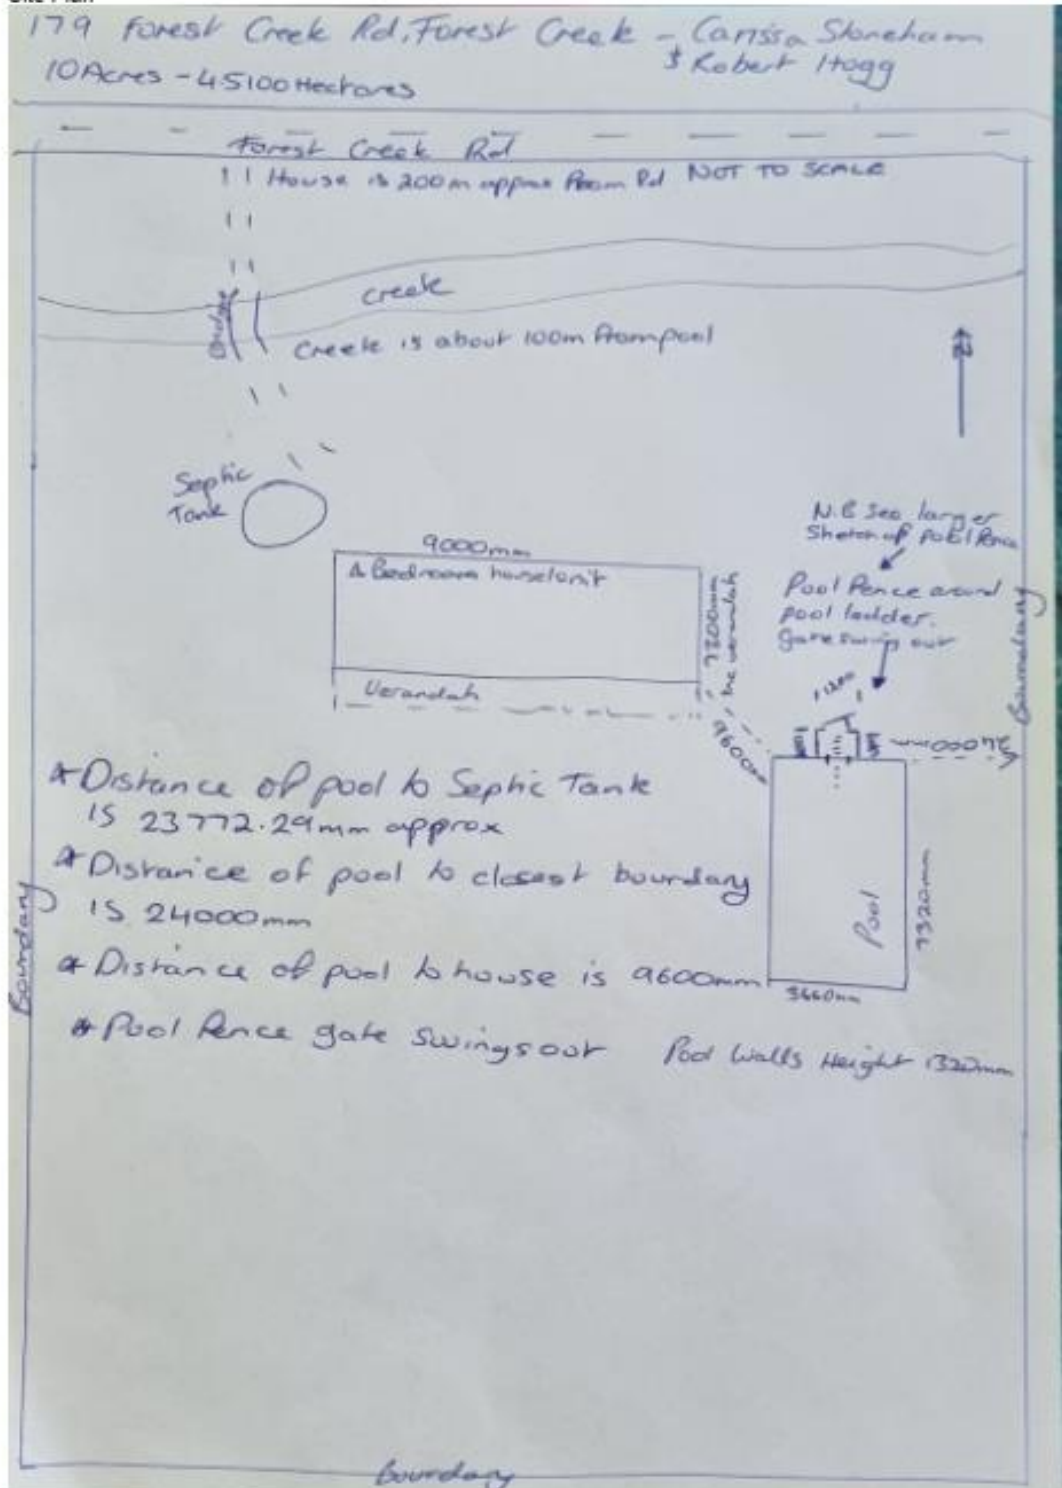 Site Plan
179 Forest Creek Rd, Forest Creek - Carissa Stoneham
& Robert Hogg
10 Acres - 4.5100 Hectares
Forest Creek Rd
House is 200m approx from Rd NOT TO SCALE
Creek
Bridge
Creek is about 100m from pool
N
Septic
Tank
N.B See larger
Sketch of pool fence
9000mm
Bedroom house/unit
7300mm
inc verandah
Pool fence around
pool ladder.
Gate swing out
Boundary
Verandah
1200
9600mm
24000
* Distance of pool to Septic Tank
is 23772.29mm approx
* Distance of pool to closest boundary
is 24000mm
Pool
7320mm
Boundary
* Distance of pool to house is 9600mm
3660mm
* Pool fence gate swings out
Pool Walls Height 1320mm
Boundary